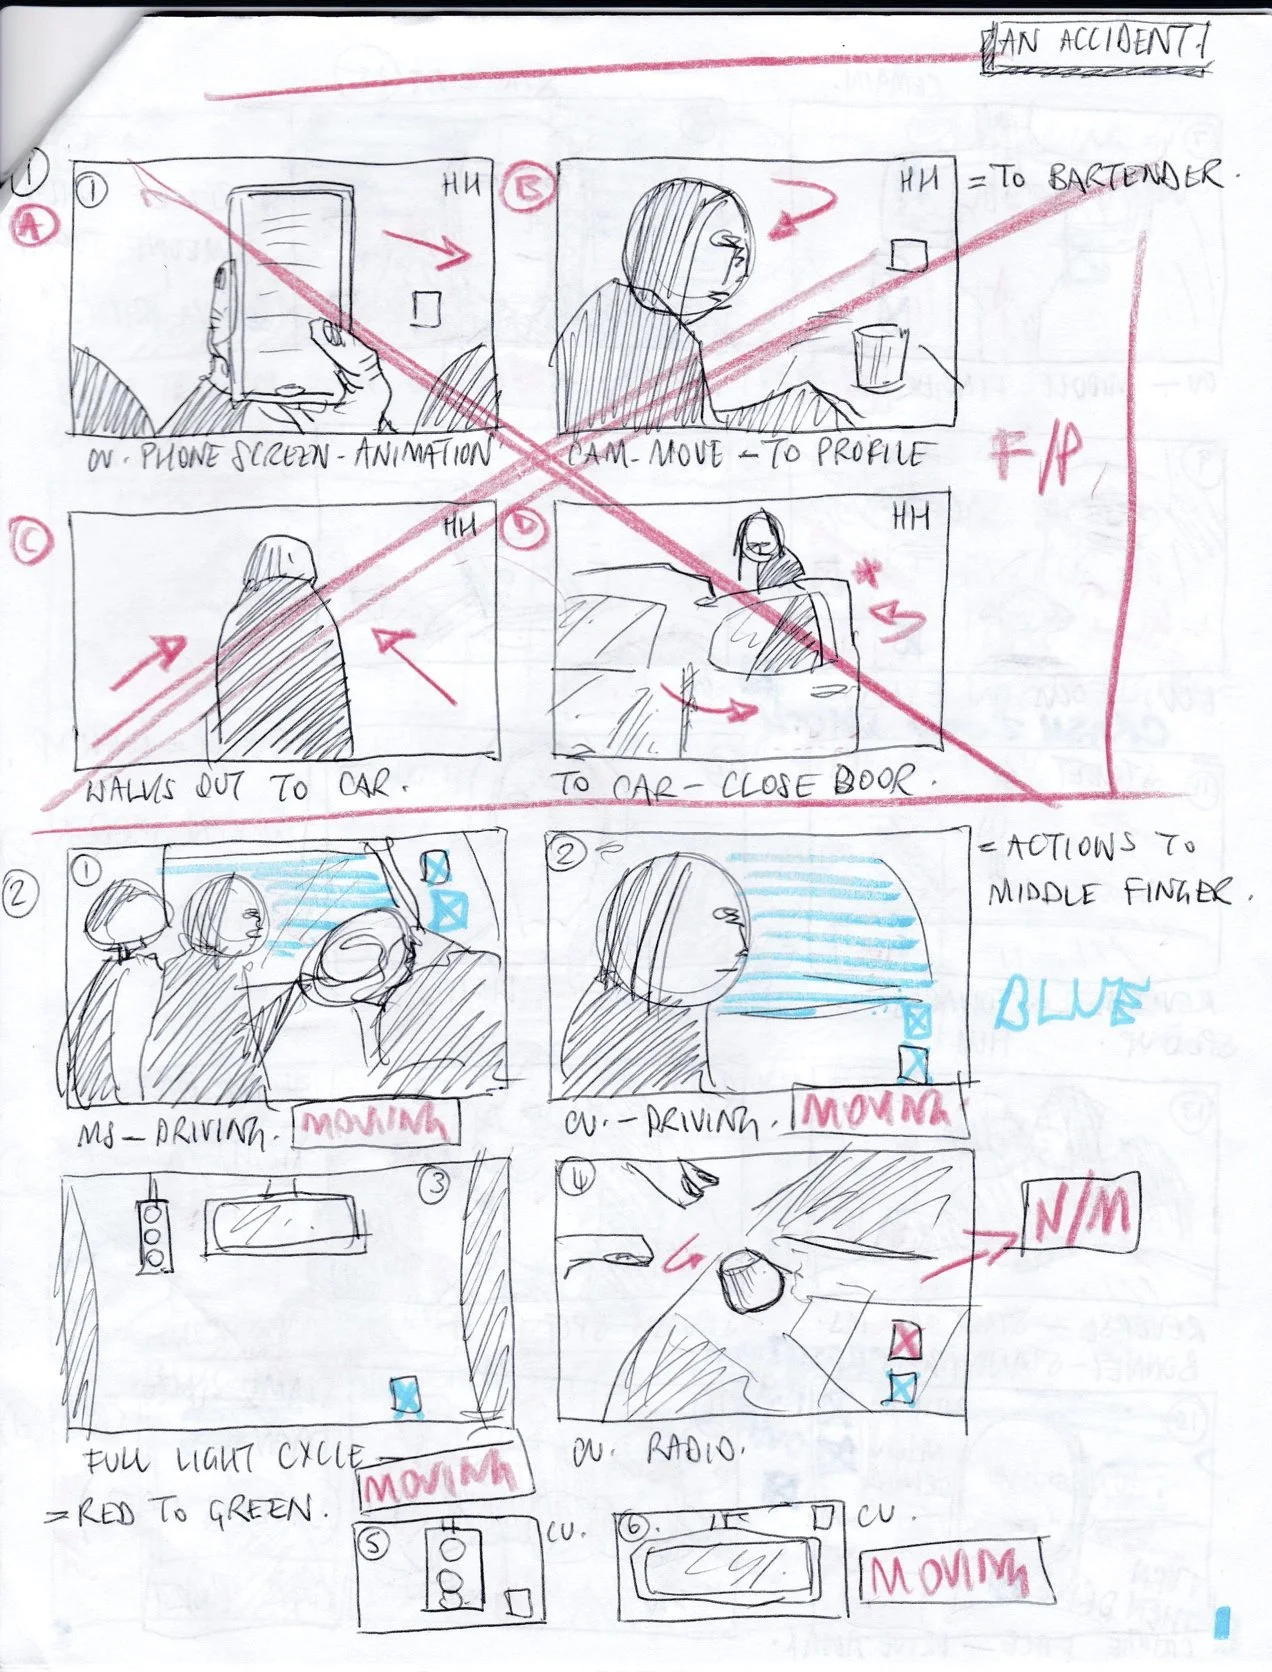 AN ACCIDENT!
1
A
1
HH
B
HH
= TO BARTENDER.
CU. PHONE SCREEN - ANIMATION
CAM - MOVE - TO PROFILE
F/P
C
HH
D
HH
*
WALKS OUT TO CAR.
TO CAR - CLOSE DOOR.
2
1
2
= ACTIONS TO
MIDDLE FINGER.
BLUE
MS - DRIVING.
MOVING
CU. - DRIVING.
MOVING
3
4
N/M
FULL LIGHT CYCLE
MOVING
= RED TO GREEN.
CU. RADIO.
5
CU.
6.
CU.
MOVING